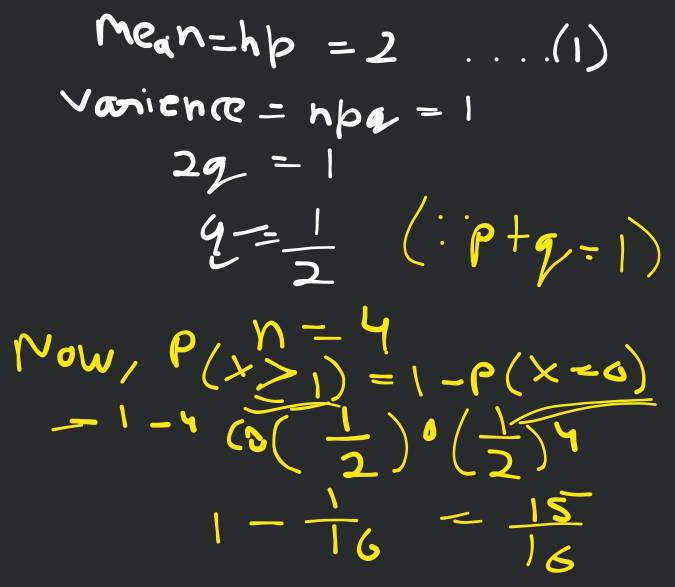 Mean=np = 2 ....(1)
varience = npq = 1
2q = 1
q = 1/2 (∵ p+q=1)
n = 4
Now, P(x≥1) = 1-P(x=0)
= 1 - ⁴C₀(1/2)⁰(1/2)⁴
1 - 1/16 = 15/16